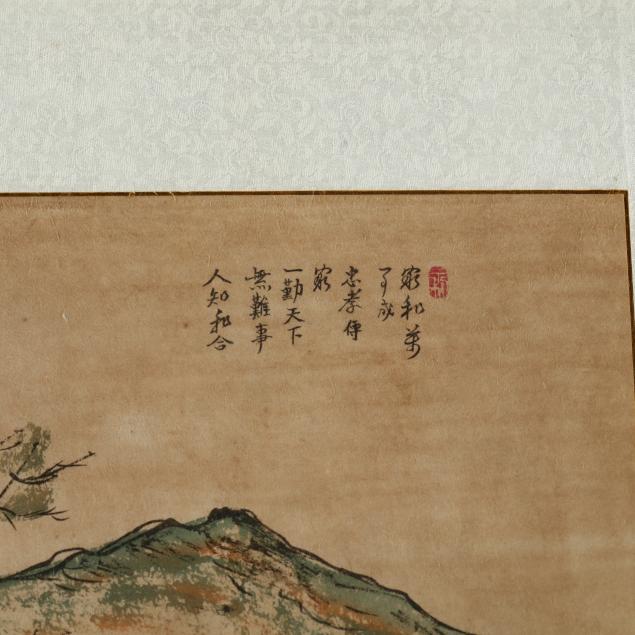 家和萬
事成
忠孝傳
家
一勤天下
無難事
人知和合